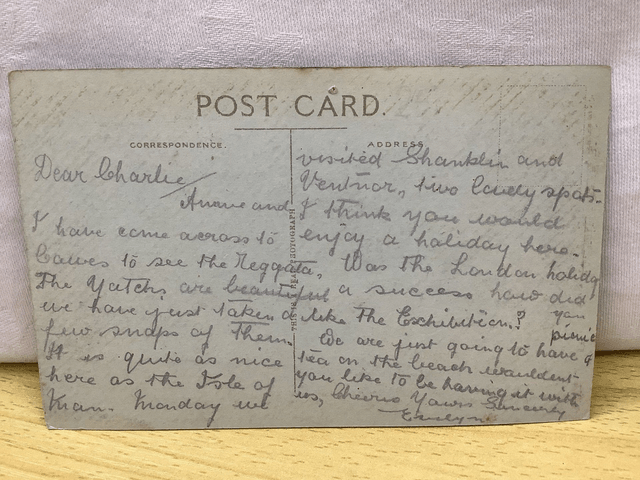 POST CARD.
CORRESPONDENCE.
ADDRESS
Dear Charlie
Annie and
I have come across to
Cowes to see the Reggata,
The Yatchs are beautiful
we have just taken a
few snaps of them.
It is quite as nice
here as the Isle of
Man. Monday we
visited Shanklin and
Ventnor, two lovely spots.
I think you would
enjoy a holiday here.
Was the London holiday
a success how did
you
like the Exhibition?
We are just going to have a
picnic
tea on the beach wouldent
you like to be having it with
us, Cheerio Yours Sincerely
Evelyn.